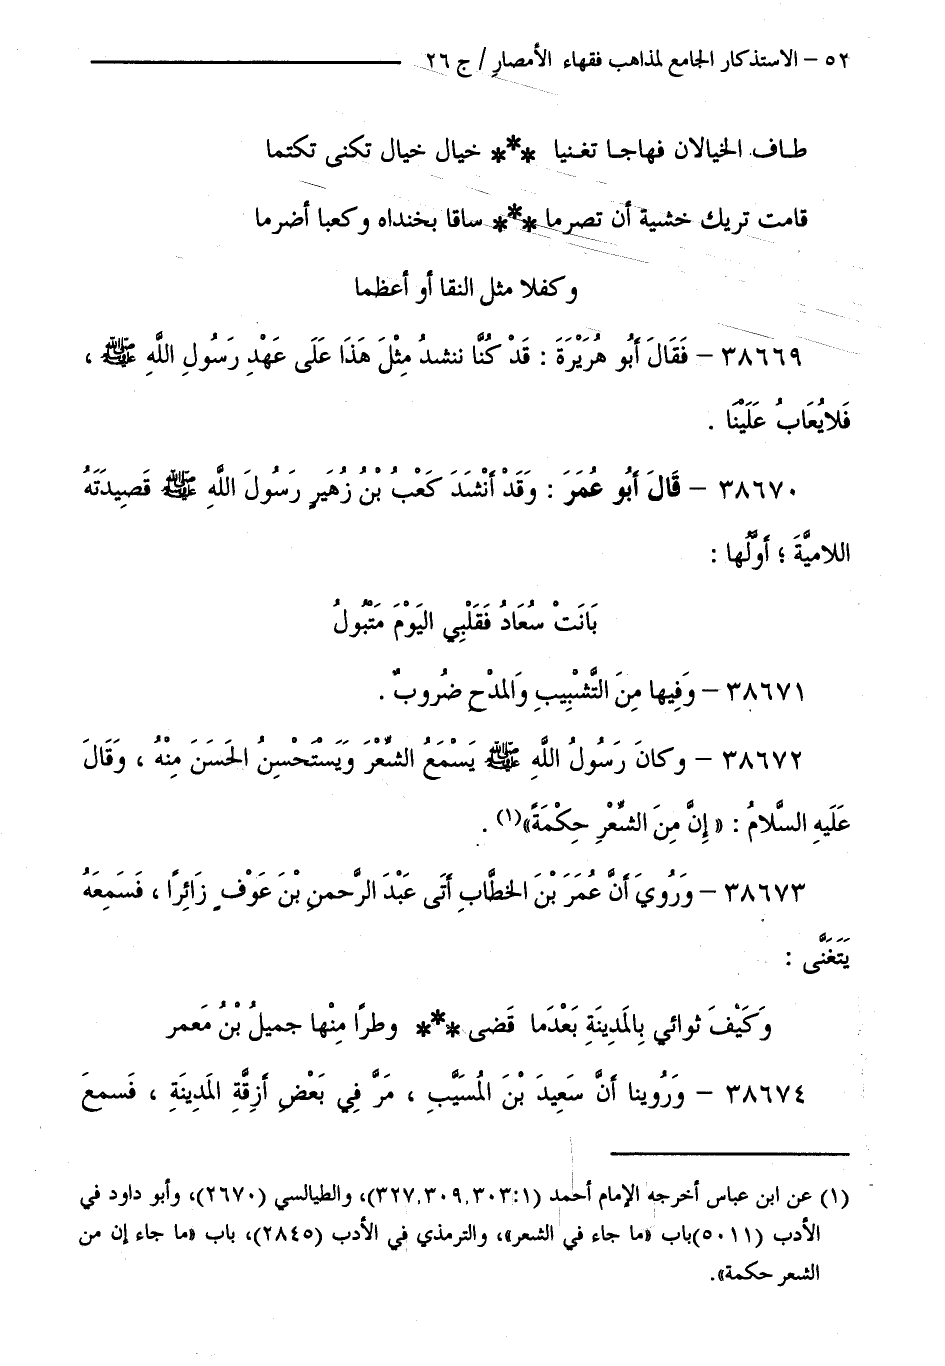 ٥٢ – الاستذكار الجامع لمذاهب فقهاء الأمصار / ج ٢٦
طـاف الخيالان فهاجـا تغـنيا *** خيال خيال تكنى تكتما
قامت تريك خشية أن تصرما *** ساقا بخنداه وكعبا أضرما
وكفلا مثل النقا أو أعظما
٣٨٦٦٩ – فَقَالَ أَبُو هُرَيْرَةَ : قَدْ كُنَّا ننشدُ مِثْلَ هَذَا عَلَى عَهْدِ رَسُولِ اللَّهِ ﷺ ،
فَلايُعَابُ عَلَيْنَا .
٣٨٦٧٠ – قَالَ أَبُو عُمَرَ : وَقَدْ أَنْشَدَ كَعْبُ بْنُ زُهَيرٍ رَسُولَ اللَّهِ ﷺ قَصِيدَتَهُ
اللاميَّةَ ؛ أوَّلُها :
بَانَتْ سُعَادُ فَقَلْبِي اليَوْمَ مَتْبُولُ
٣٨٦٧١ – وَفِيها مِنَ التَّشْبِيبِ وَالمدْحِ ضُروبٌ .
٣٨٦٧٢ – وكانَ رَسُولُ اللَّهِ ﷺ يَسْمَعُ الشِّعْرَ وَيَسْتَحْسِنُ الحَسَنَ مِنْهُ ، وَقَالَ
عَلَيهِ السَّلامُ : « إِنَّ مِنَ الشِّعْرِ حِكْمَةً»(١) .
٣٨٦٧٣ – وَرُويَ أَنَّ عُمَرَ بْنَ الخطَّابِ أَتَى عَبْدَ الرَّحمنِ بْنَ عَوْفٍ زَائِرًا ، فَسَمِعَهُ
يَتَغَنَّى :
وَكَيْفَ ثوائي بِالمَدِينَةِ بَعْدَما قَضى *** وطرًا مِنْها جميلُ بْنُ مَعمر
٣٨٦٧٤ – وَرُوينا أَنَّ سَعِيدَ بْنَ المُسَيَّبِ ، مَرَّ فِي بَعْضِ أَزِقَّةِ المَدِينَةِ ، فَسمعَ
(١) عن ابن عباس أخرجه الإمام أحمد (٣٢٧,٣٠٩,٣٠٣:١)، والطيالسي (٢٦٧٠)، وأبو داود في
الأدب (٥٠١١)باب «ما جاء في الشعر»، والترمذي في الأدب (٢٨٤٥)، باب «ما جاء إن من
الشعر حكمة».